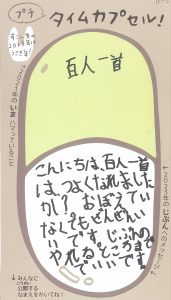 プチ
タイムカプセル!
すこし先の
2023年は
うさぎ年!
←2021年のいまハマっていること
百人一首
←2023年のじぶんへのメッセージ
こんにちは、百人一首
はつよくなれました
か?おぼえてい
なくてもぜんぜん
いいです。じぶんの
やれるところまで
でいいです
↓みんなに
公開する
なまえをかいてね!